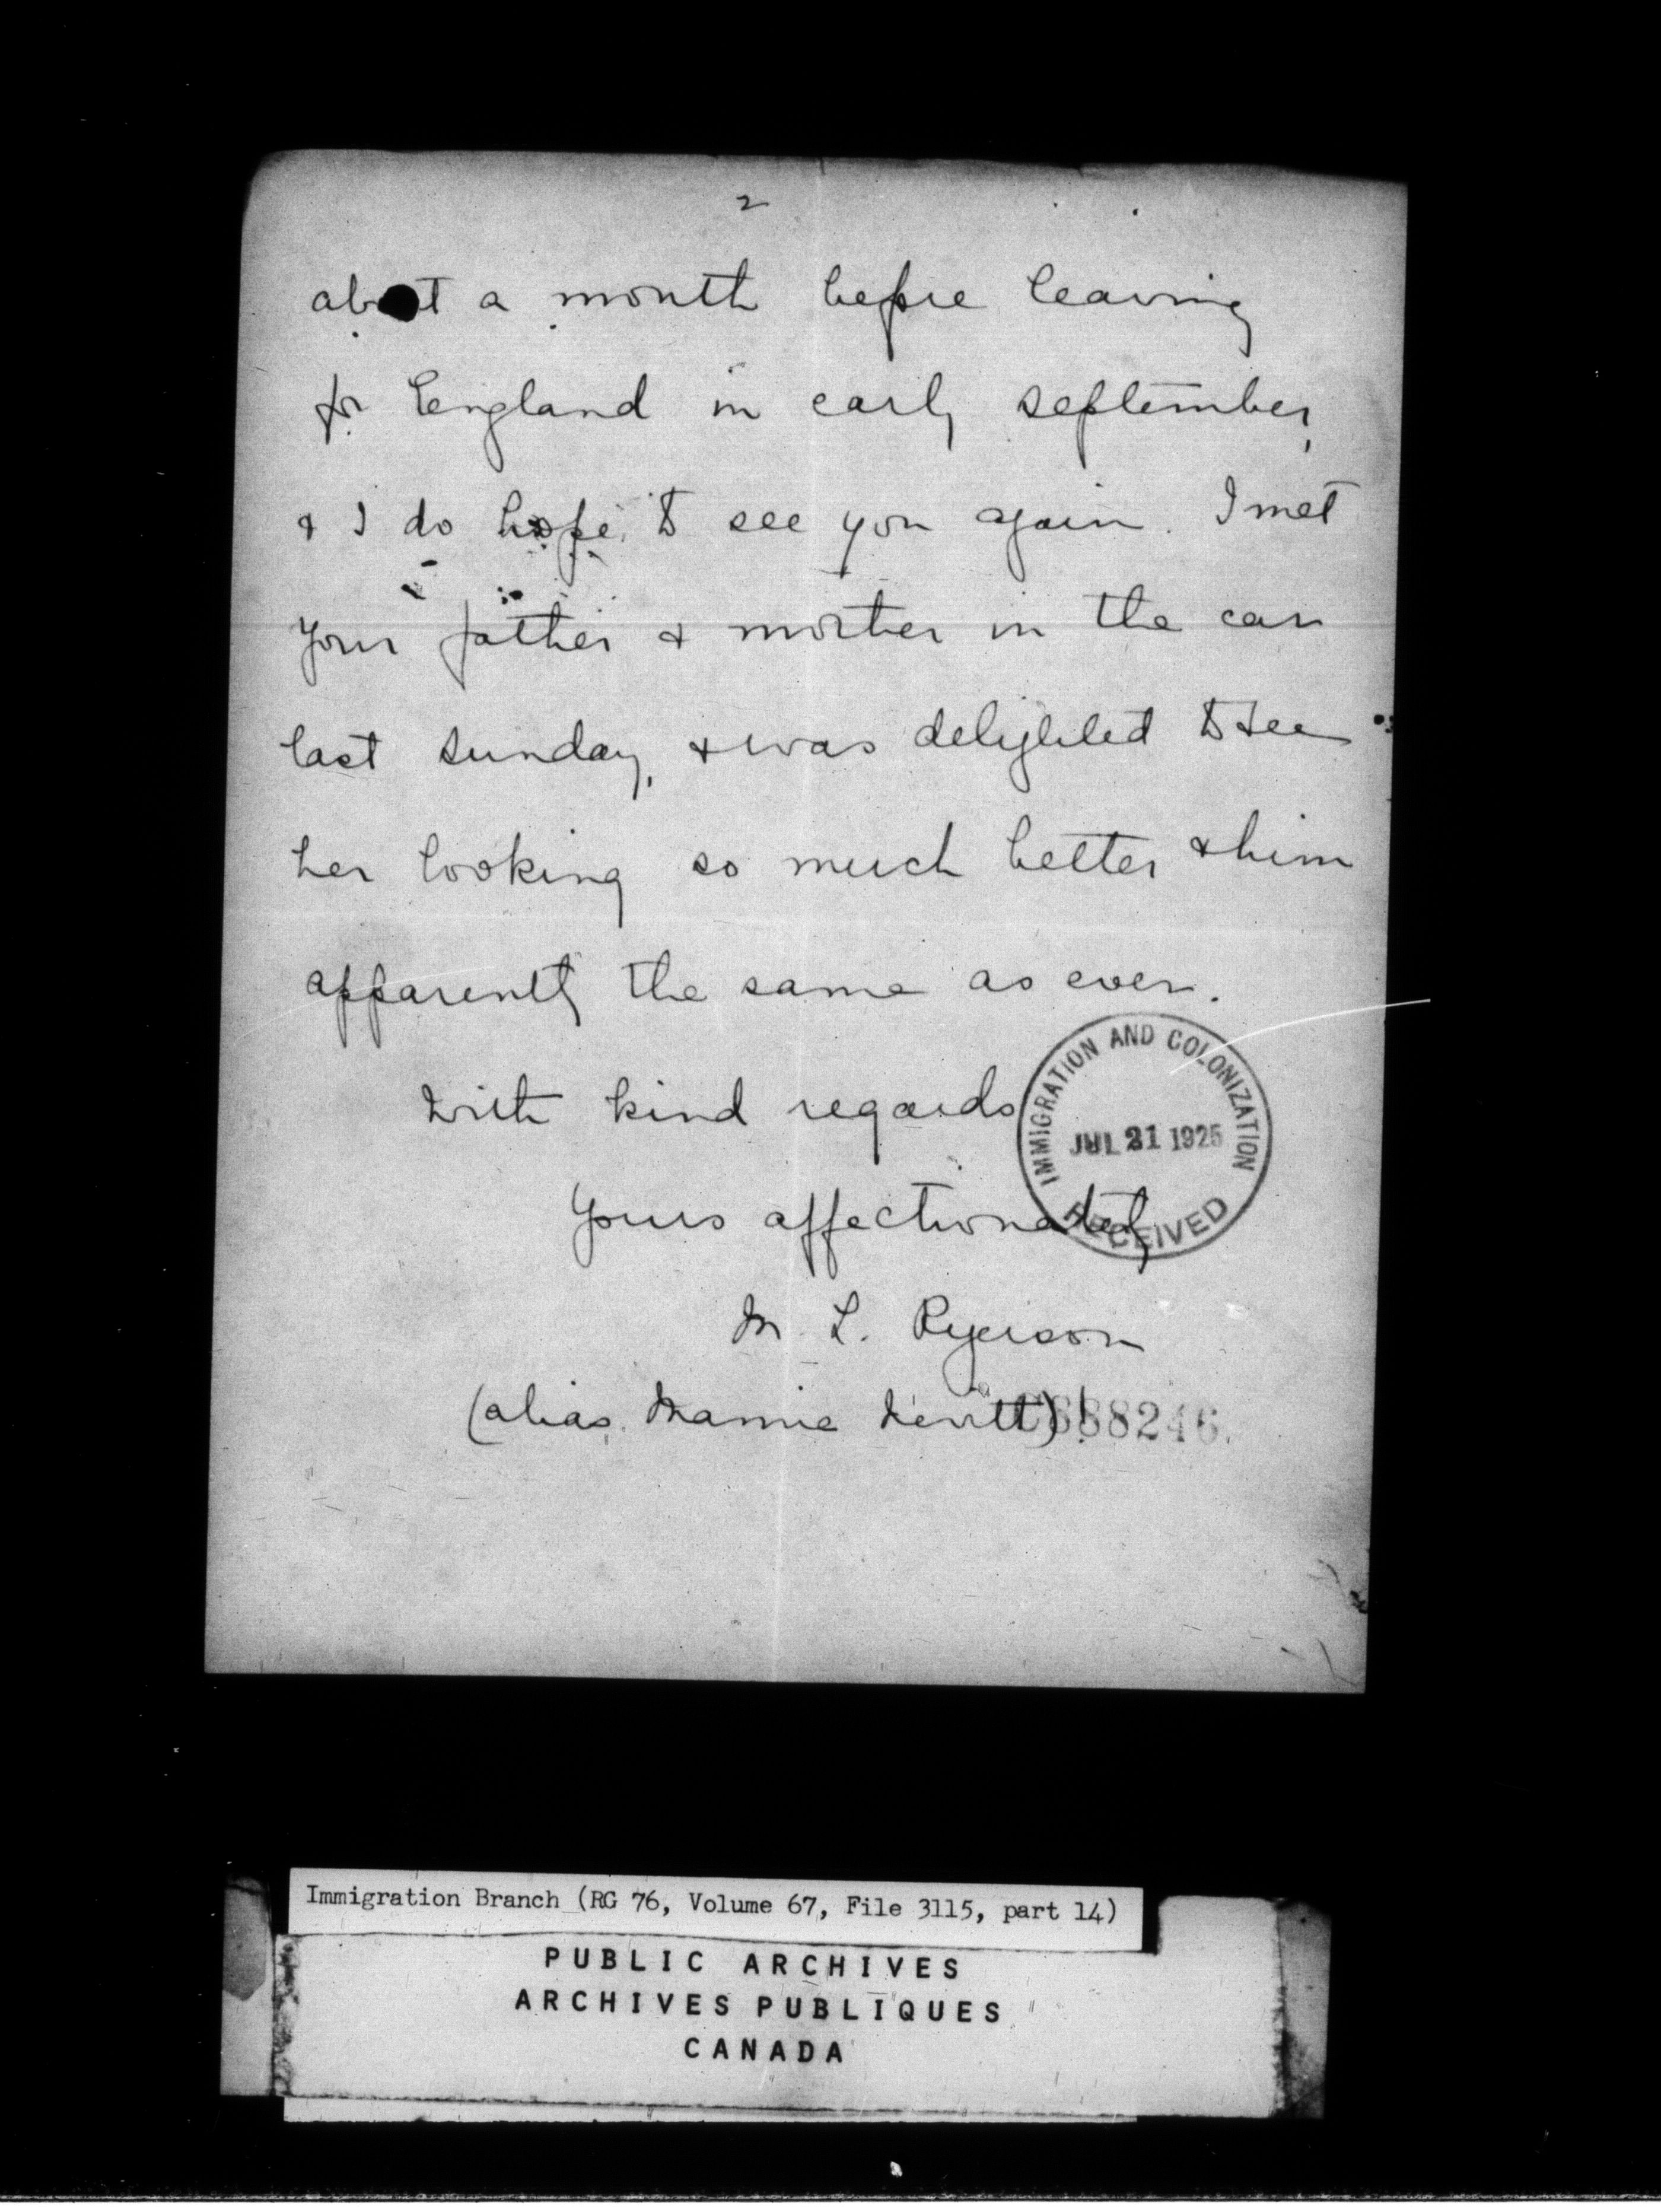 2
about a month before leaving
for England in early September,
& I do hope to see you again. I met
your father & mother in the car
last Sunday, & was delighted to see
her looking so much better & him
apparently the same as ever.
With kind regards
Yours affectionately
M. L. Ryerson
(alias Mamie Hewitt)!
IMMIGRATION AND COLONIZATION
JUL 21 1925
RECEIVED
888246.
Immigration Branch (RG 76, Volume 67, File 3115, part 14)
PUBLIC ARCHIVES
ARCHIVES PUBLIQUES
CANADA